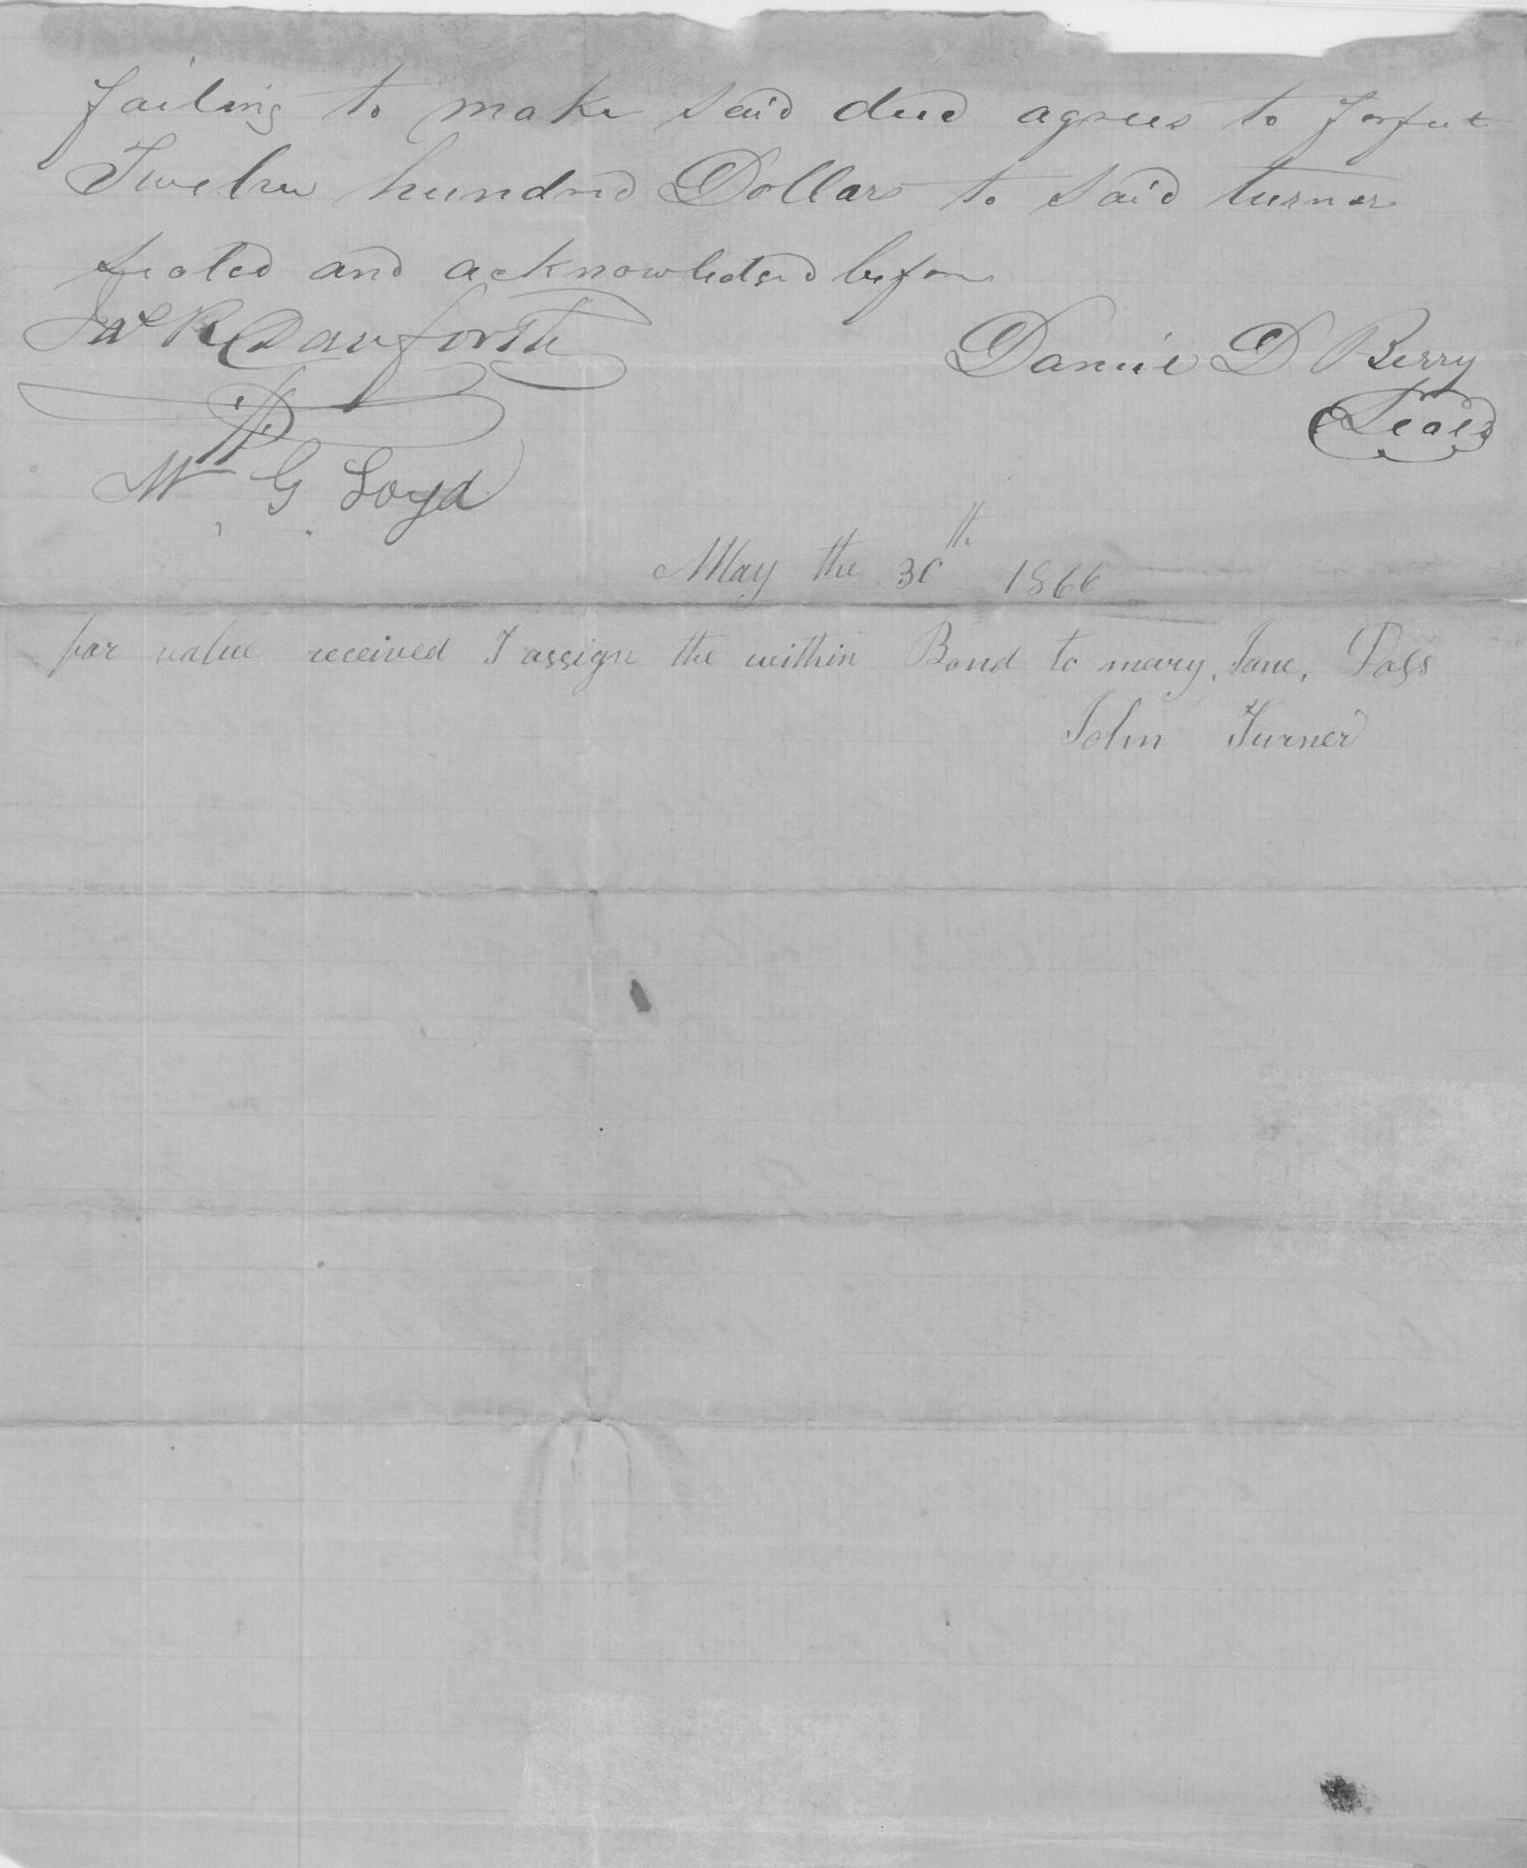 failing to make said deed agrees to forfeit
Twelve hundred Dollars to said turner
sealed and acknowledged before
Jas R Danforth
Daniel D Berry
Seal
Wm G Loyd
May the 30th 1866
for value received I assign the within Bond to mary, Jane, Pass
John Turner